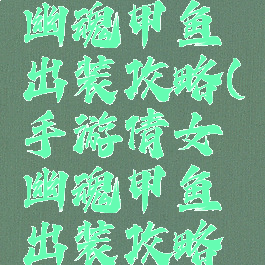 幽魂甲鱼
出装攻略(
手游倩女
幽魂甲鱼
出装攻略